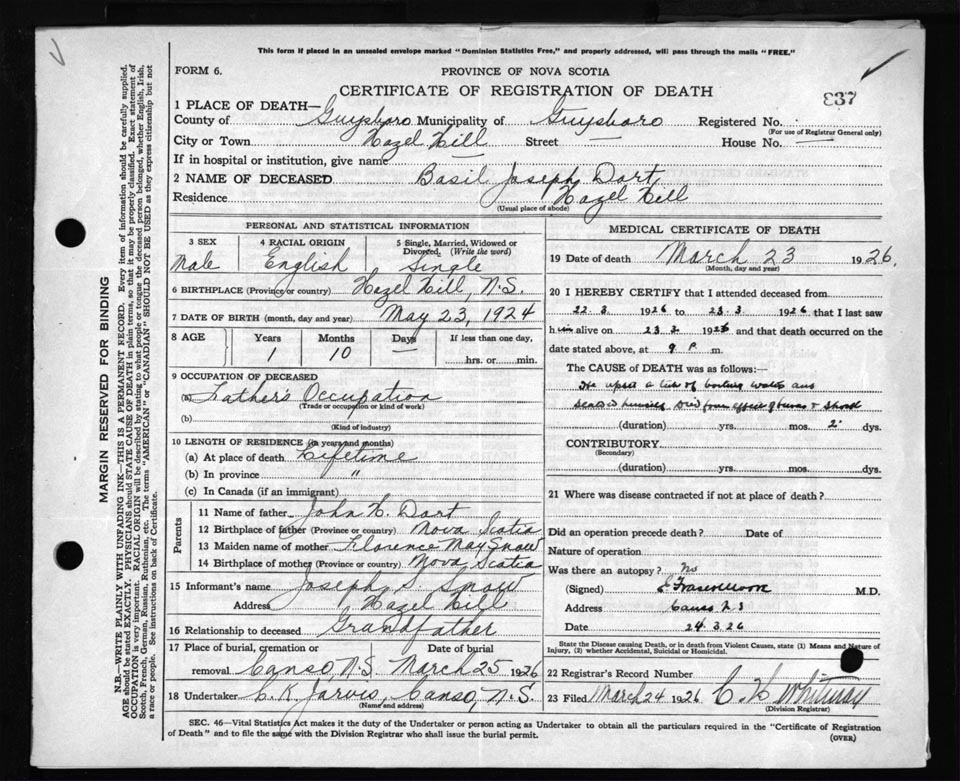 This form if placed in an unsealed envelope marked "Dominion Statistics Free," and properly addressed, will pass through the mails "FREE."
FORM 6.
PROVINCE OF NOVA SCOTIA
CERTIFICATE OF REGISTRATION OF DEATH
837
1 PLACE OF DEATH—
County of Guysboro Municipality of Guysboro Registered No.
(For use of Registrar General only)
City or Town Hazel Hill Street — House No. —
If in hospital or institution, give name —
2 NAME OF DECEASED Basil Joseph Dort
Residence Hazel Hill
(Usual place of abode)
PERSONAL AND STATISTICAL INFORMATION
3 SEX 4 RACIAL ORIGIN 5 Single, Married, Widowed or Divorced. (Write the word)
Male English Single
6 BIRTHPLACE (Province or country) Hazel Hill, N.S.
7 DATE OF BIRTH (month, day and year) May 23, 1924
8 AGE Years Months Days If less than one day,
1 10 — hrs. or min.
9 OCCUPATION OF DECEASED
(a) Father's Occupation
(Trade or occupation or kind of work)
(b)
(Kind of industry)
10 LENGTH OF RESIDENCE (in years and months)
(a) At place of death Lifetime
(b) In province "
(c) In Canada (if an immigrant)
Parents
11 Name of father John H. Dort
12 Birthplace of father (Province or country) Nova Scotia
13 Maiden name of mother Florence May Snow
14 Birthplace of mother (Province or country) Nova Scotia
15 Informant's name Joseph S. Snow
Address Hazel Hill
16 Relationship to deceased Grandfather
17 Place of burial, cremation or Date of burial
removal Canso, N.S. March 25 1926
18 Undertaker C. K. Jarvis, Canso, N.S.
(Name and address)
MEDICAL CERTIFICATE OF DEATH
19 Date of death March 23 1926.
(Month, day and year)
20 I HEREBY CERTIFY that I attended deceased from
22.3 1926 to 23.3 1926 that I last saw
him alive on 23.3 1926 and that death occurred on the
date stated above, at 9 P. m.
The CAUSE of DEATH was as follows:—
He upset a tub of boiling water and
scalded himself. Died from effect of burns & shock
(duration) yrs. mos. 2 dys.
CONTRIBUTORY
(Secondary)
(duration) yrs. mos. dys.
21 Where was disease contracted if not at place of death?
Did an operation precede death? Date of
Nature of operation
Was there an autopsy? No
(Signed) M.D.
Address Canso N S
Date 24.3.26
State the Disease causing Death, or in death from Violent Causes, state (1) Means and Nature of Injury, (2) whether Accidental, Suicidal or Homicidal.
22 Registrar's Record Number
23 Filed March 24 1926 C. H. Whitman
(Division Registrar)
SEC. 46—Vital Statistics Act makes it the duty of the Undertaker or person acting as Undertaker to obtain all the particulars required in the "Certificate of Registration
of Death" and to file the same with the Division Registrar who shall issue the burial permit.
(OVER)
MARGIN RESERVED FOR BINDING
N.B.—WRITE PLAINLY WITH UNFADING INK—THIS IS A PERMANENT RECORD. Every item of information should be carefully supplied.
AGE should be stated EXACTLY. PHYSICIANS should STATE CAUSE OF DEATH in plain terms, so that it may be properly classified. Exact statement of
OCCUPATION is very important. RACIAL ORIGIN will be described by stating to what people or tongue the deceased person belonged, whether English, Irish,
Scotch, French, German, Russian, Ruthenian, etc. The terms "AMERICAN" or "CANADIAN" SHOULD NOT BE USED as they express citizenship but not
a race or people. See instructions on back of Certificate.